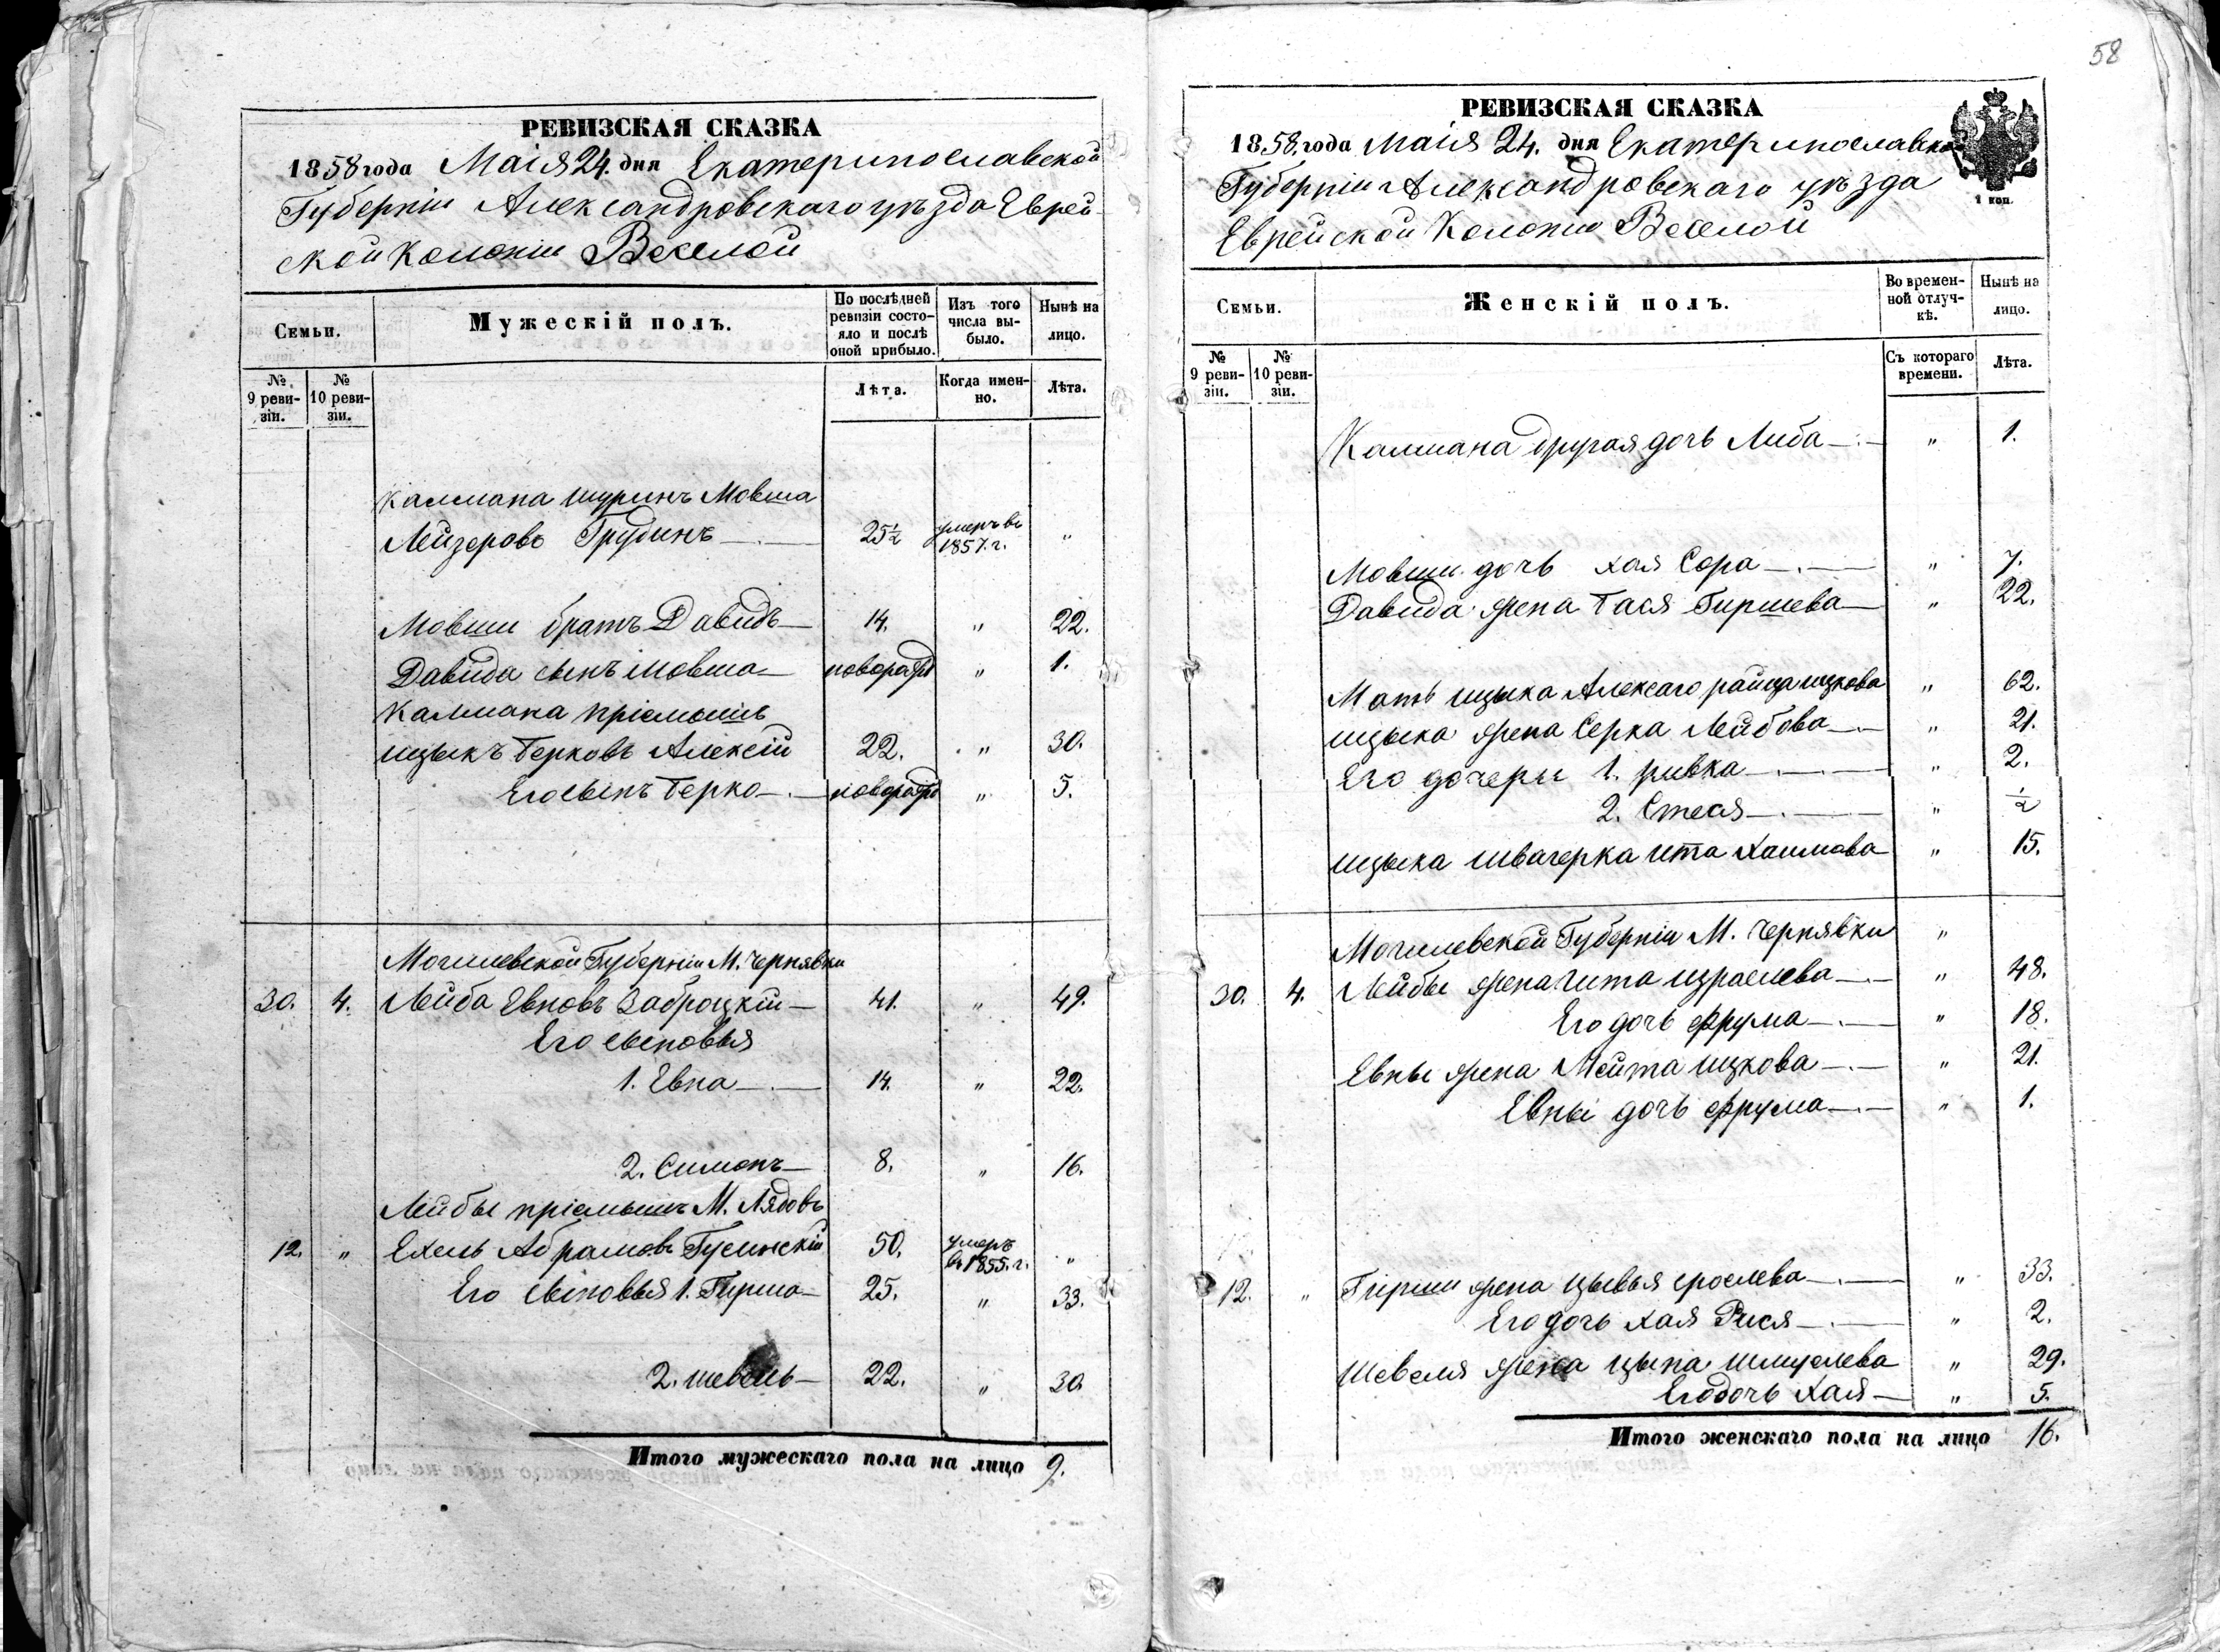 58
РЕВИЗСКАЯ СКАЗКА
1858 года Маія 24. дня Екатеринославской
Губерніи Александровскаго уѣзда Еврей-
ской Колоніи Веселой
Семьи.
Мужескій полъ.
По послѣдней ревизіи состояло и послѣ оной прибыло.
Изъ того числа выбыло.
Нынѣ на лицо.
№ 9 ревизіи.
№ 10 ревизіи.
Лѣта.
Когда именно.
Лѣта.
Калмана шуринъ Мовша
Лейзеровъ Грудинъ 25½ умеръ въ 1857. г. "
Мовши братъ Давидъ 14. " 22.
Давида сынъ Мовша новорожд " 1.
Калмана пріемышъ
Ицыкъ Берковъ Алексій 22. " 30.
Его сынъ Берко новорожд " 5.
Могилевской Губерніи М. Чернявки
30. 4. Лейба Евновъ Заброцкій 41. " 49.
Его сыновья
1. Евна 14. " 22.
2. Симонъ 8. " 16.
Лейбы пріемышъ М. Лядовъ
12. " Ехель Абрамовъ Гусинскій 50. умеръ въ 1855. г. "
Его сыновья 1. Гирша 25. " 33.
2. Шевель 22. " 30.
Итого мужескаго пола на лицо 9.
РЕВИЗСКАЯ СКАЗКА
1858. года Маія 24. дня Екатеринославской
Губерніи Александровскаго уѣзда
Еврейской Колоніи Веселой
1 коп.
Семьи.
Женскій полъ.
Во временной отлучкѣ.
Нынѣ на лицо.
№ 9 ревизіи.
№ 10 ревизіи.
Съ котораго времени.
Лѣта.
Калмана другая дочь Либа " 1.
Мовши дочь Хая Сора " 7.
Давида жена Бася Гиршева " 22.
Мать Ицыка Алексаго Райца Ицкова " 62.
Ицыка жена Серка Лейбова " 21.
Его дочери 1. Ривка " 2.
2. Стеся " ½
Ицыка швагерка Ита Хаимова " 15.
Могилевской Губерніи М. Чернявки "
30. 4. Лейбы жена Гита Израелева " 48.
Его дочь Фрума " 18.
Евны жена Мейта Ицкова " 21.
Евны дочь Фрума " 1.
12. " Гирши жена Цывья Сроелева " 33.
Его дочь Хая Рися " 2.
Шевеля жена Цыпа Шмуелева " 29.
Его дочь Хая " 5.
Итого женскаго пола на лицо 16.